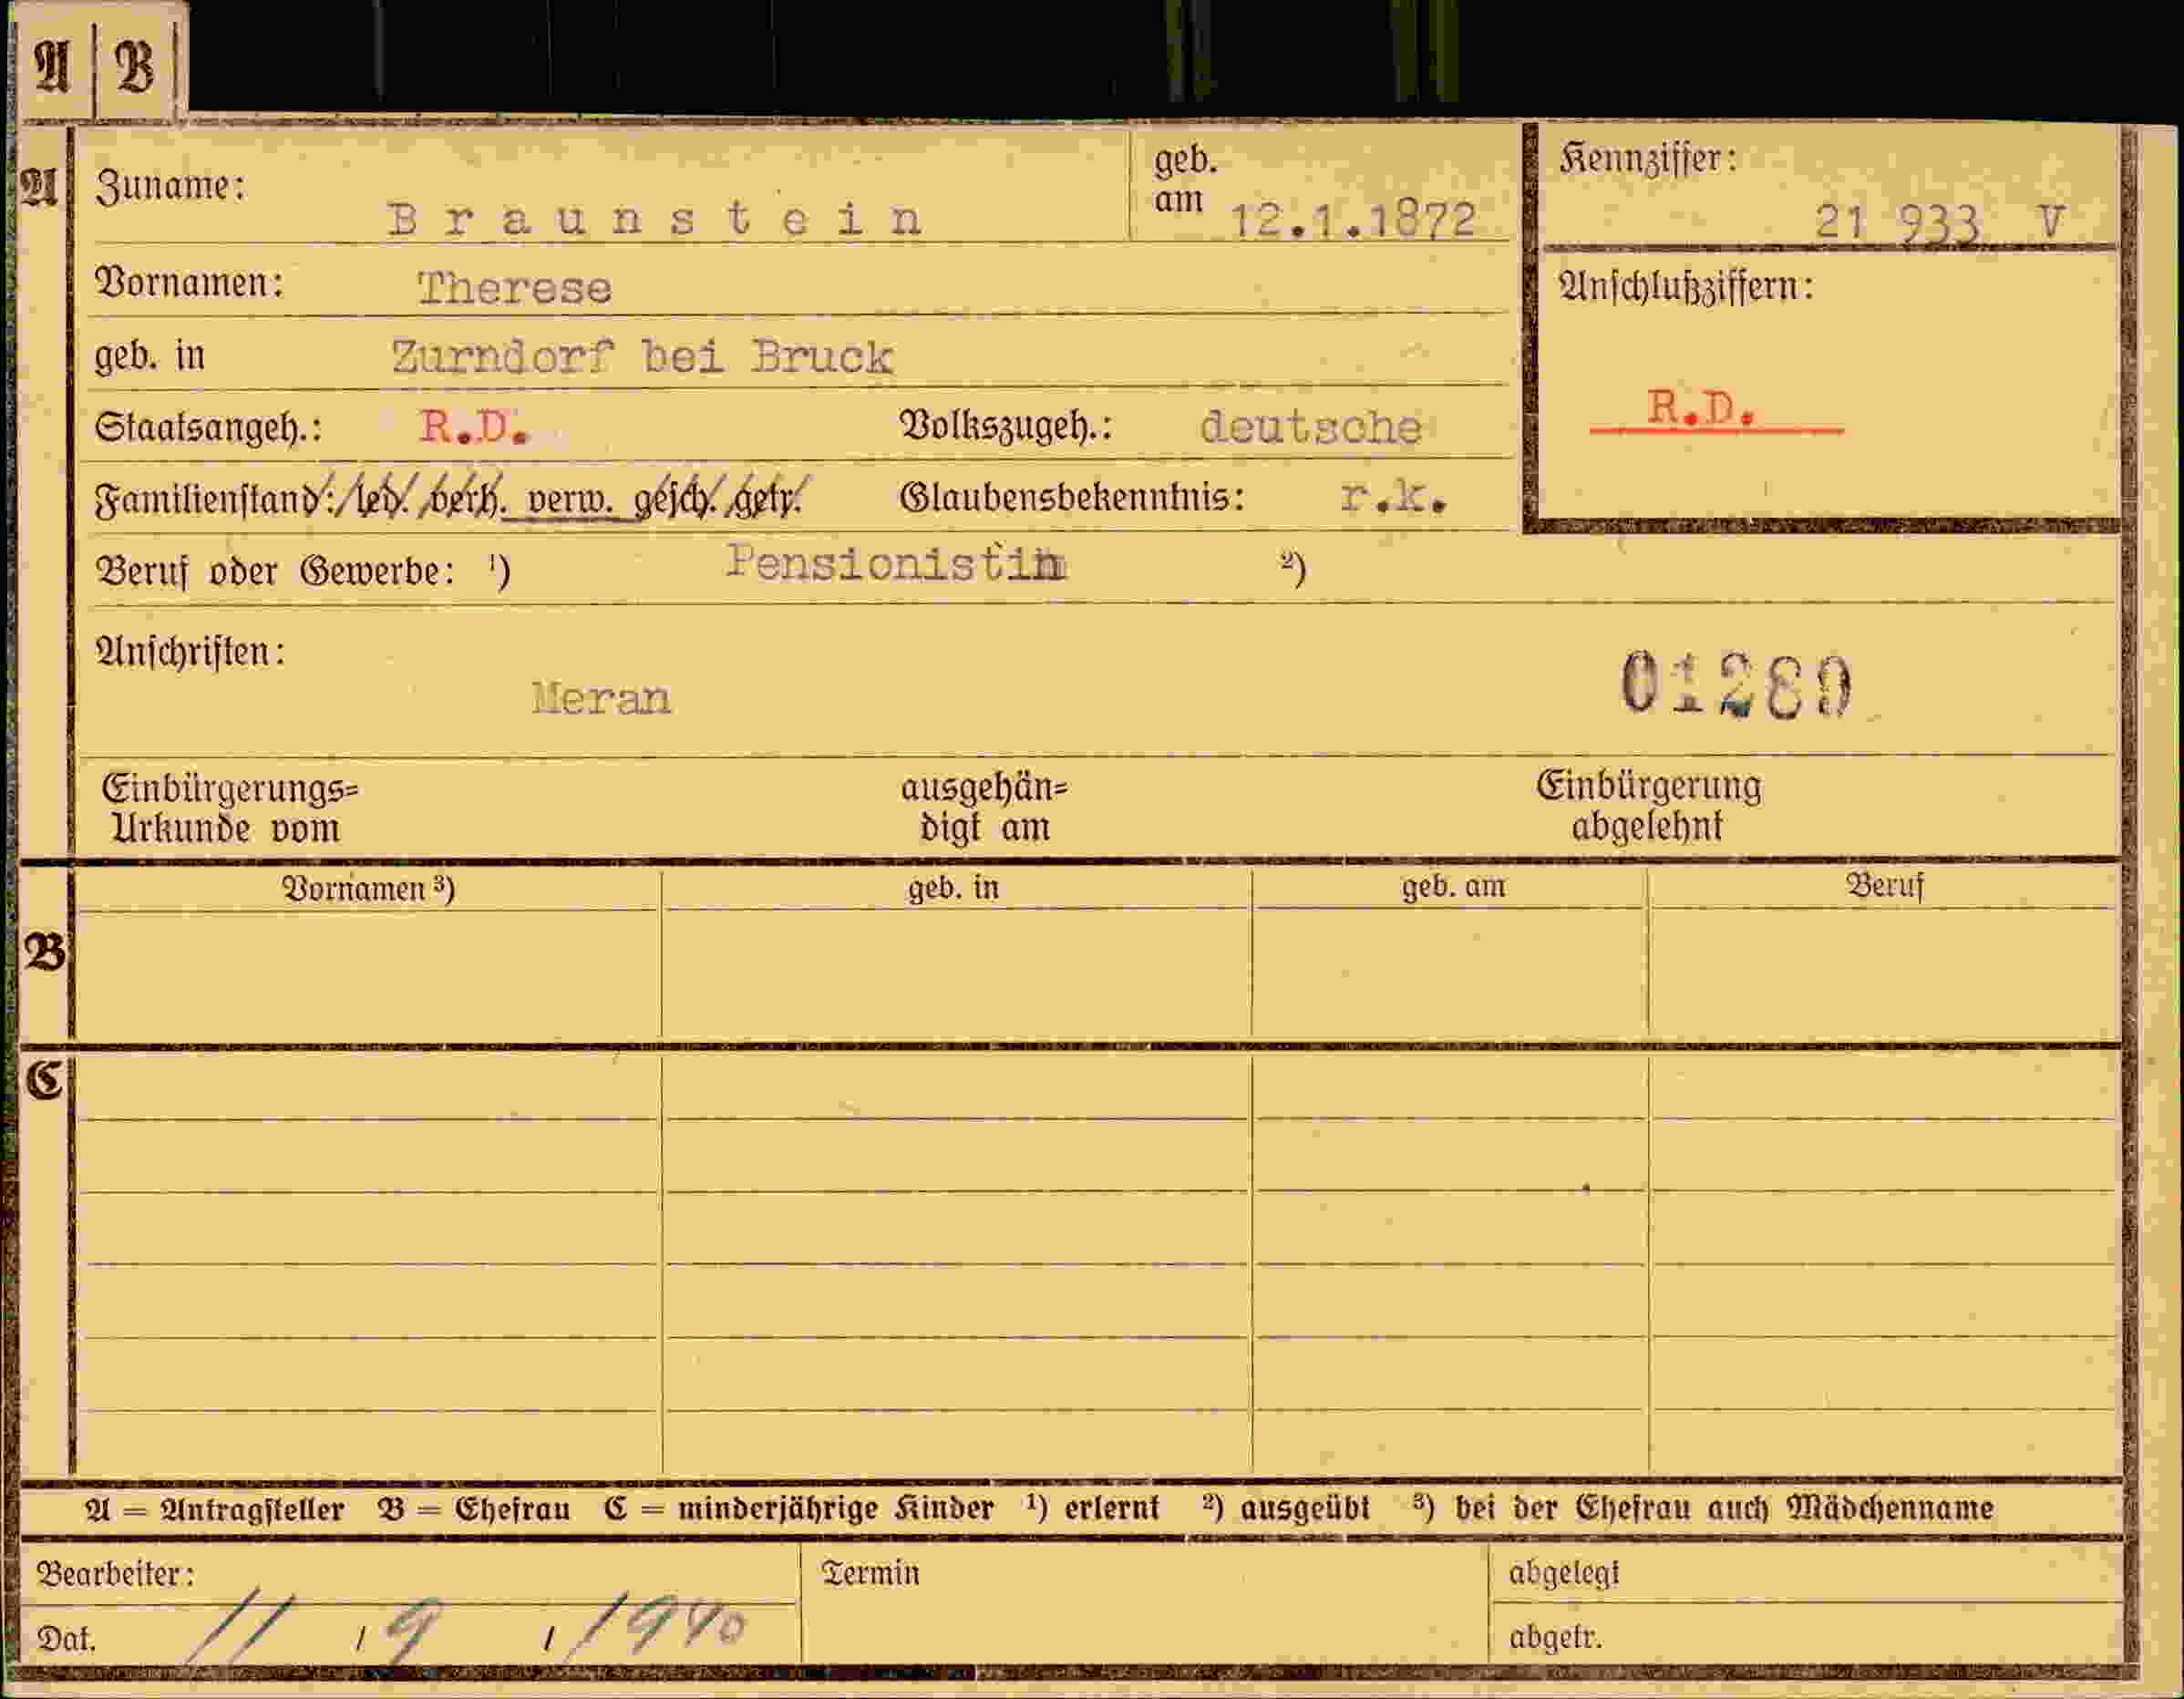 A B
A Zuname: Braunstein geb. am 12.1.1872 Kennziffer: 21 933 V
Vornamen: Therese Anschlußziffern:
geb. in Zurndorf bei Bruck
Staatsangeh.: R.D. Volkszugeh.: deutsche R.D.
Familienstand: led. verh. verw. gesch. getr. Glaubensbekenntnis: r.k.
Beruf oder Gewerbe: ¹) Pensionistin ²)
Anschriften:
Meran 01280
Einbürgerungs= ausgehän= Einbürgerung
Urkunde vom digt am abgelehnt
Vornamen ³) geb. in geb. am Beruf
B
C
A = Antragsteller B = Ehefrau C = minderjährige Kinder ¹) erlernt ²) ausgeübt ³) bei der Ehefrau auch Mädchenname
Bearbeiter: Termin abgelegt
Dat. 11 / 9 / 1940 abgetr.